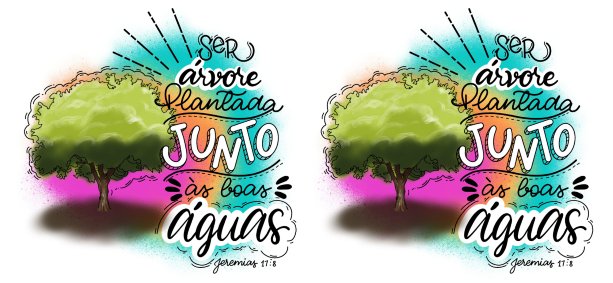 SER
árvore
Plantada
JUNTO
às boas
águas
Jeremias 17:8
SER
árvore
Plantada
JUNTO
às boas
águas
Jeremias 17:8